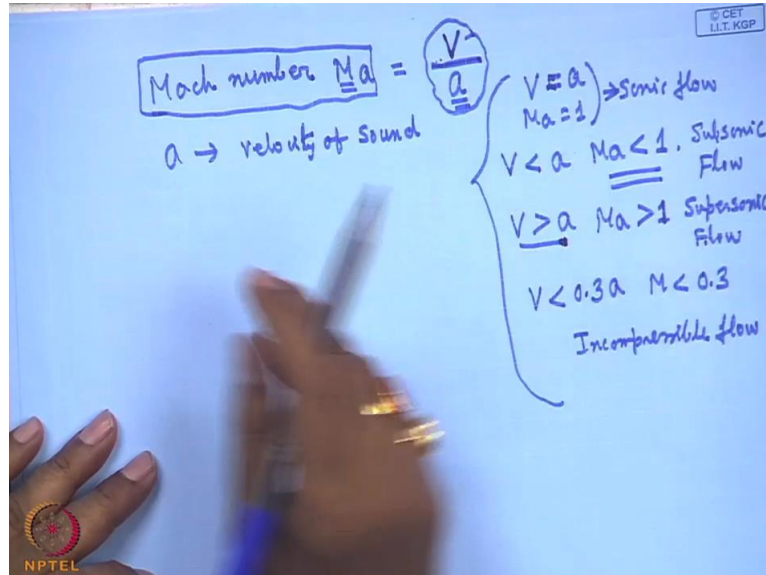 © CET
I.I.T. KGP
Mach number Ma = V / a
a → velocity of sound
V = a
Ma = 1 → Sonic flow
V < a Ma < 1. Subsonic
Flow
V > a Ma > 1 Supersonic
Flow
V < 0.3a M < 0.3
Incompressible flow
NPTEL